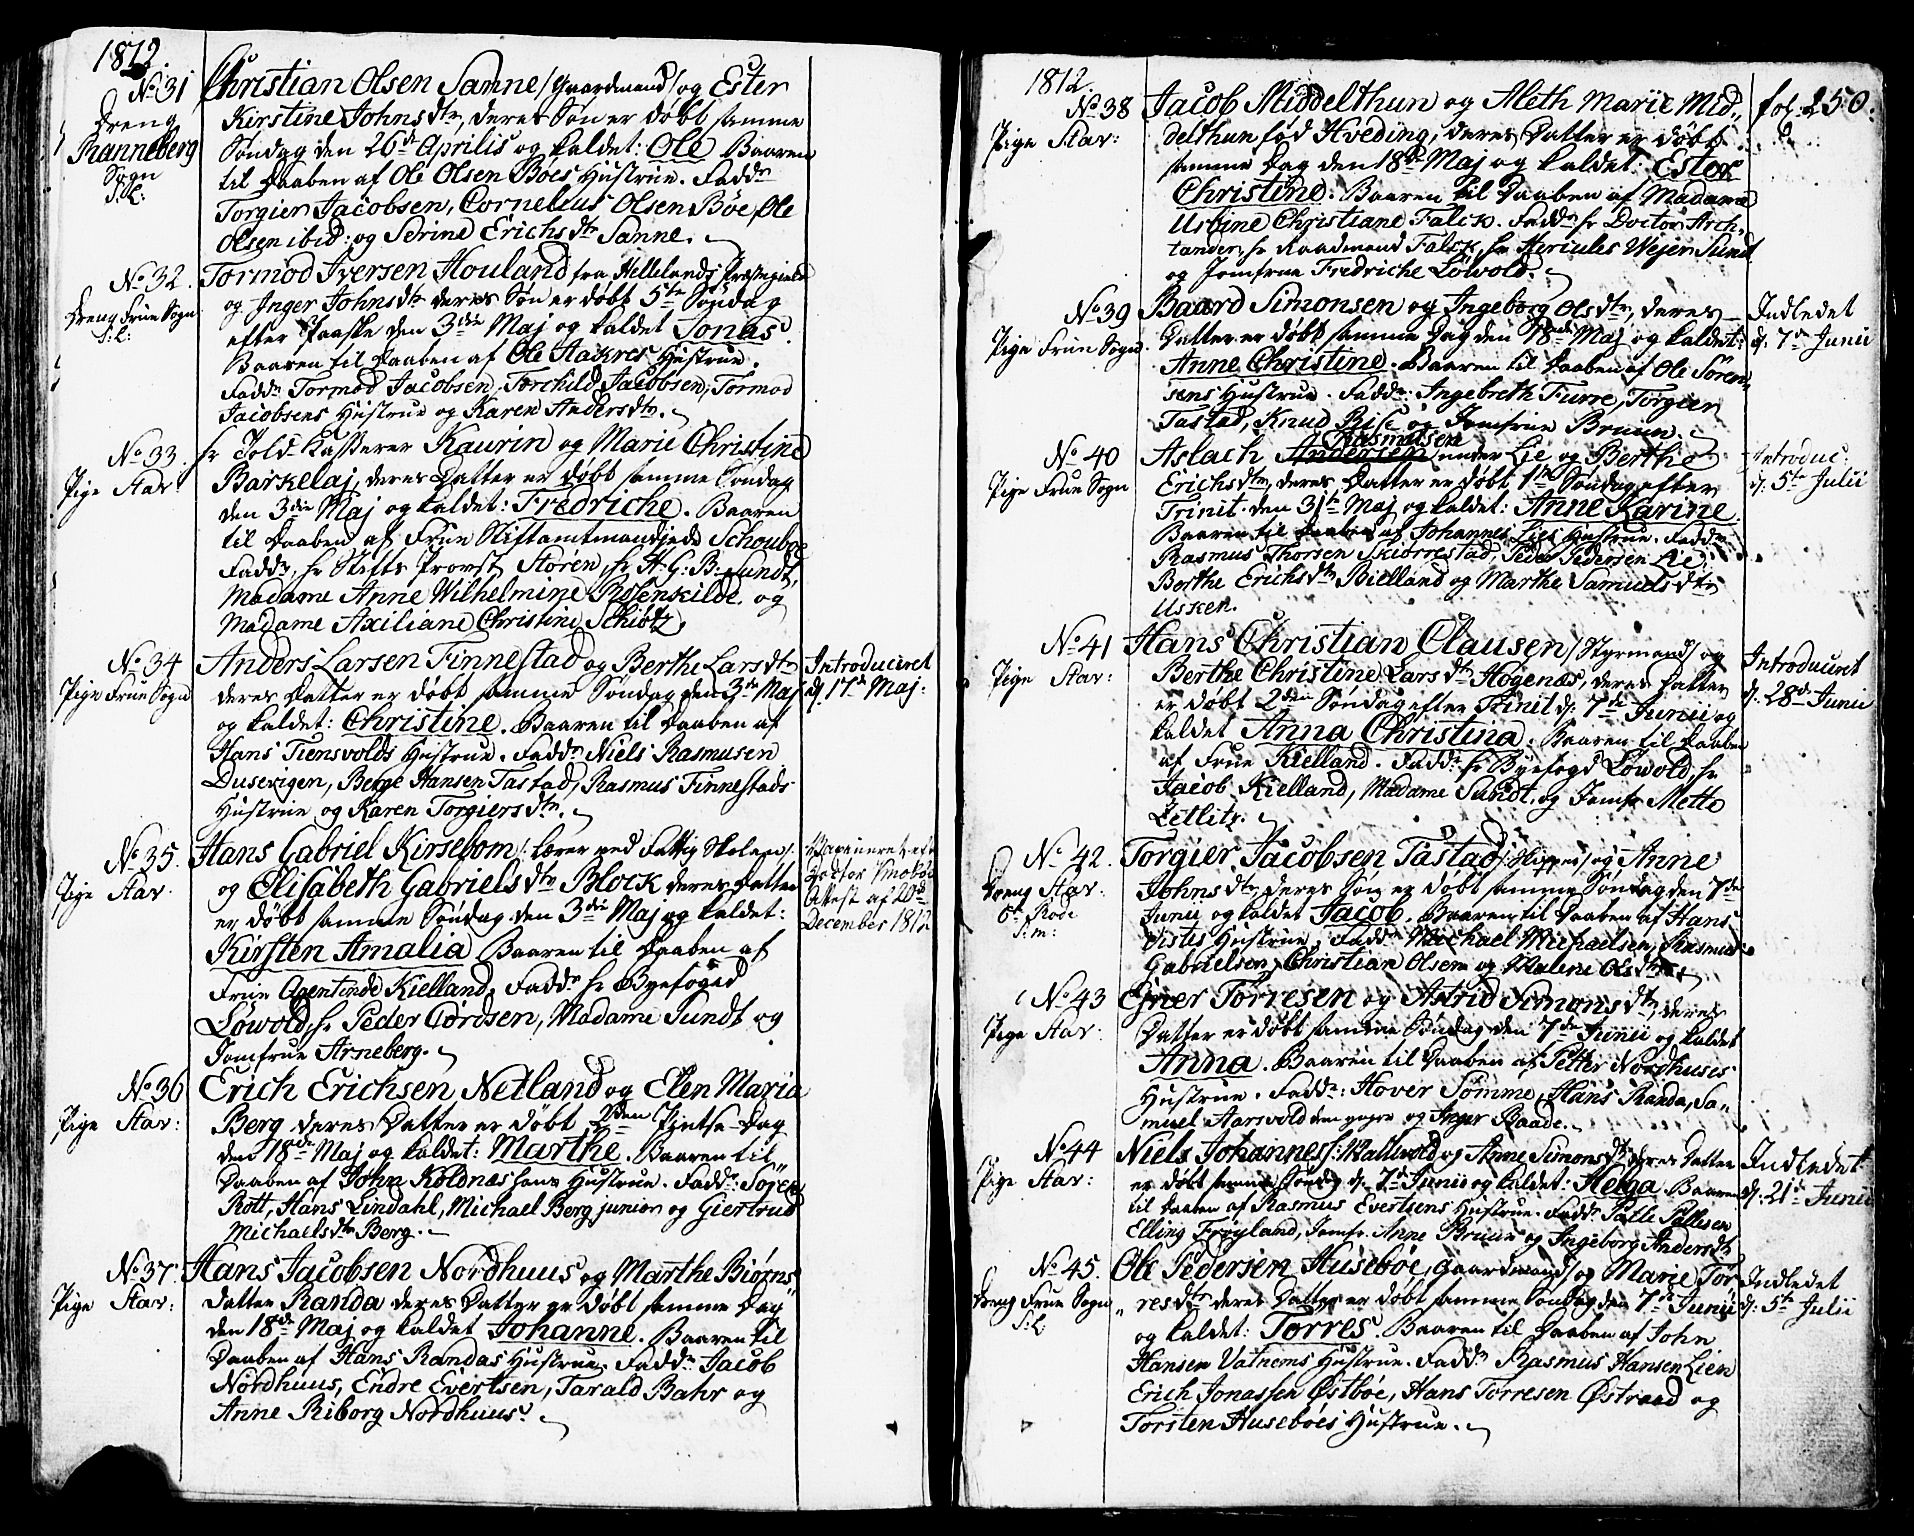 1812.
No 31
Dreng
Ranneberg
Sogn
S: L:
Christian Olsen Sanne /Gaardmand/ og Ester
Kirstine Johnsdtr, deres Søn er døbt samme
Søndag den 26de Aprilis og kaldet: Ole Baaren
til Daaben af Ole Olsen Bøes Hustrue. Faddr
Torgier Jacobsen, Cornelius Olsen Bøe, Ole
Olsen ibid: og Serine Erichsdtr Sanne.
No 32.
Dreng Frue Sogn
S: L:
Tormod Iversen Houland fra Hellelands Præstegield
og Inger Johnsdtr deres Søn er døbt 5te Søndag
efter Paaske den 3die Maj og kaldet Jonas.
Baaren til Daaben af Ole Aakres Hustrue.
Faddr Tormod Jacobsen, Torchild Jacobsen, Tormod
Jacobsens Hustrue og Karen Andersdtr.
No 33.
Pige Stav:
Hr Told-Kasserer Kaurin og Marie Christine
Barkelaj, deres Datter er døbt samme Søndag
den 3die Maj og kaldet: Fredriche. Baaren
til Daaben af Frue Stiftamtmandinde Schouboe
Faddr, Hr Stifts Provst Støren, Hr H: G: B: Sundt,
Madame Anne Wilhelmine Rosenkilde og
Madame Axiliane Christine Schiøtz
No 34
Pige Frue Sogn
Anders Larsen Finnestad og Berthe Larsdtr
deres Datter er døbt samme Søndag den 3die Maj
og kaldet: Christine. Baaren til Daaben af
Hans Tiensvolds Hustrue. Faddr Niels Rasmusen
Dusevigen, Berge Hansen Tastad, Rasmus Finnestads
Hustrue og Karen Torgiersdtr.
Introduceret
d: 17de Maj:
No 35.
Pige Stav:
Hans Gabriel Kirsebom /: Lærer ved Fattig Skolen /:
og Elisabeth Gabrielsdtr Block deres Datter
er døbt samme Søndag den 3die Maj og kaldet:
Kirsten Amalia Baaren til Daaben af
Frue Agentinde Kielland, Faddr Hr Byefoged
Løwold, Hr Peder Cordsen, Madame Sundt og
Jomfrue Arneberg.
Vaccineret efter
Doctor Smobøes
Attest af 20de
December 1812
No 36
Pige Stav:
Erich Erichsen Netland og Elen Maria
Berg deres Datter er døbt 2den Pintse-Dag
den 18de Maj og kaldet: Marthe. Baaren til
Daaben af John Koldnæshans Hustrue. Faddr: Søren
Rott, Hans Lindahl, Michael Berg junior og Giertrud
Michaelsdtr Berg.
No 37.
Pige Stav:
Hans Jacobsen Nordhuus og Marthe Biørns
datter Randa deres Datter er døbt samme Dag
den 18de Maj og kaldet Johanne. Baaren til
Daaben af Hans Randas Hustrue. Faddr: Jacob
Nordhuus, Endre Evertsen, Tarald Bahr og
Anne Riborg Nordhuus.
1812.
No 38
Pige Stav:
Jacob Middelthun og Aleth Marie Mid-
delthun fød Hveding, deres Datter er døbt
samme Dag den 18de Maj og kaldet: Ester
Christine. Baaren til Daaben af Madame
Usbine Christiane Falck. Faddr Hr Doctor Arch-
tander, Hr Raadmand Falck, Hr Hercules Wejer Sundt
og Jomfrue Fredriche Løwold.
fol: 250.
No 39
Pige Frue Sogn
Baard Simonsen og Ingeborg Olsdtr, deres
Datter er døbt samme Dag den 18de Maj og kaldet:
Anne Christine. Baaren til Daaben af Ole Søren-
sens Hustrue. Faddr: Ingebreth Furre, Torgier
Tastad, Knud Rise og Jomfrue Bruun.
Indledet
d: 7de Junii
No 40
Pige Frue Sogn
Rasmusen
Aslach Andersen under Lie og Berthe
Erichsdtr, deres Datter er døbt 1ste Søndag efter
Trinit: den 31te Maj og kaldet: Anne Karine
Baaren til Daaben af Johannes Lies Hustrue. Faddr
Rasmus Thorsen Skiorrestad, Peder Pedersen Lie,
Berthe Erichsdtr Bielland og Marthe Samuelsdtr
Usken.
Introduc:
d: 5te Julii
No 41
Pige Stav:
Hans Christian Clausen /Styrmand/ og
Berthe Christine Larsdtr Høgenæs, deres Datter
er døbt 2den Søndag efter Trinit d: 7de Junii og
kaldet Anna Christina. Baaren til Daaben
af Frue Kielland. Faddr Hr Byefogd Løwold, Hr
Jacob Kielland, Madame Sundt, og Jomfr Mette
Zetlitz.
Introduceret
d: 28de Junii
No 42.
Dreng Stav:
6te Rode
S: m:
Torgier Jacobsen Tastad /Skipper/ og Anne
Johnsdtr, deres Søn er døbt samme Søndag den 7de
Junii og kaldet Jacob. Baaren til Daaben af Hans
Hustrue. Faddr Michael Michaelsen, Rasmus
Gabrielsen, Christian Olsen og Malene Olsdtr
No 43
Pige Stav:
Ejner Torresen og Astrid Simonsdtr, deres
Datter er døbt samme Søndag den 7de Junii og kaldet
Anna. Baaren til Daaben af Petter Nordhuses
Hustrue. Faddr: Hover Sømme, Hans Randa, Sa-
muel Aarsvold den yngre og Inger Raade.
No 44
Pige Stav:
Niels Johannes: Malthvold og Anne Simonsdtr deres Datter
er døbt samme Søndag d: 7de Junii og kaldet: Helga. Baaren
til Daaben af Rasmus Evertsens Hustrue. Faddr Palle Pallesen
Elling Frøyland, Jomfr: Anne Bruun og Ingeborg Andersdtr
Indledet
d: 21de Junii
No 45.
Dreng Frue Sogn
S: L:
Ole Pedersen Husebøe, Gaardmand/ og Marie Tor-
resdtr deres Datter er døbt samme Søndag den 7de Junii
og kaldet: Torres. Baaren til Daaben af John
Hansen Vatnems Hustrue. Faddr Rasmus Hansen Lien
Erich Jonassen Østbøe, Hans Torresen Østraad og
Torsten Husebøes Hustrue.
Indledet
d: 5te Julii